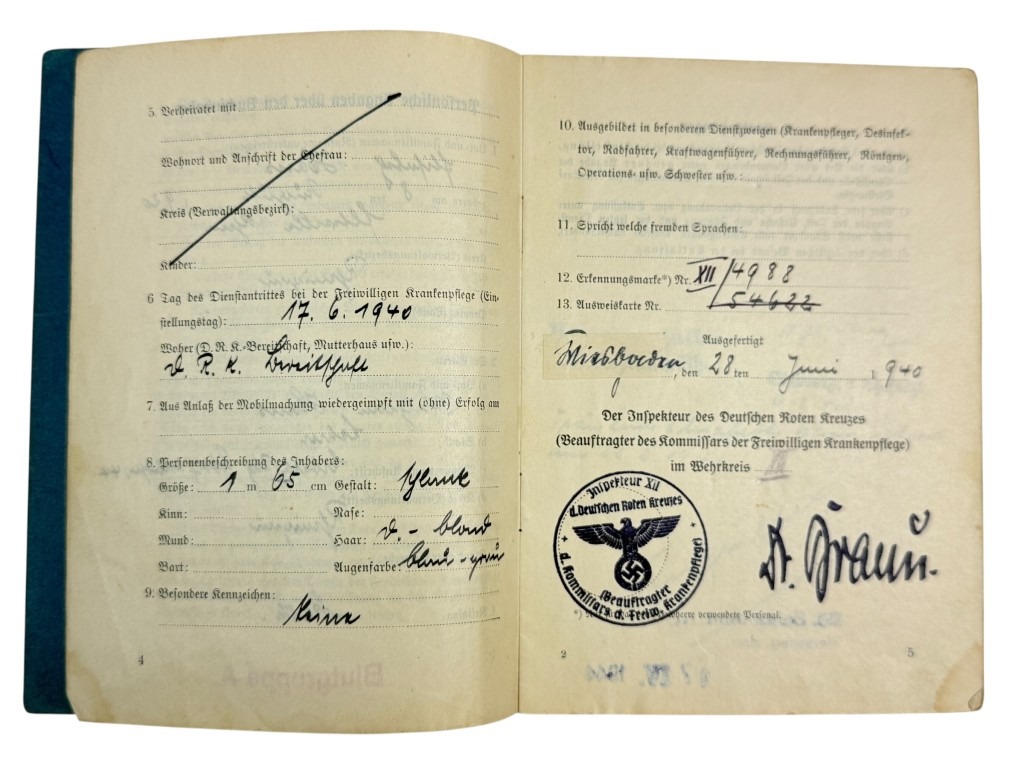 5. Verheiratet mit
Wohnort und Anschrift der Ehefrau:
Kreis (Verwaltungsbezirk):
Kinder:
6 Tag des Dienstantrittes bei der Freiwilligen Krankenpflege (Ein-
stellungstag): 17. 6. 1940
Woher (D.R.K.-Bereitschaft, Mutterhaus usw.):
D. R. K. Bereitschaft
7. Aus Anlaß der Mobilmachung wiedergeimpft mit (ohne) Erfolg am
8. Personenbeschreibung des Inhabers:
Größe: 1 m 65 cm Gestalt: schlank
Kinn: Nase:
Mund: Haar: d. - blond
Bart: Augenfarbe: blau-grau
9. Besondere Kennzeichen:
keine
4
Blutgruppe A
10. Ausgebildet in besonderen Dienstzweigen (Krankenpfleger, Desinfek-
tor, Radfahrer, Kraftwagenführer, Rechnungsführer, Röntgen-,
Operations- usw. Schwester usw.:
11. Spricht welche fremden Sprachen:
12. Erkennungsmarke*) Nr. XII/4988
13. Ausweiskarte Nr. 54622
Ausgefertigt
Wiesbaden, den 28 ten Juni 1940
Der Inspekteur des Deutschen Roten Kreuzes
(Beauftragter des Kommissars der Freiwilligen Krankenpflege)
im Wehrkreis XII
Inspekteur XII
d. Deutschen Roten Kreuzes
(Beauftragter
d. Kommissars d. Freiw. Krankenpflege)
Dr. Braun.
verwendete Personal.
2
5